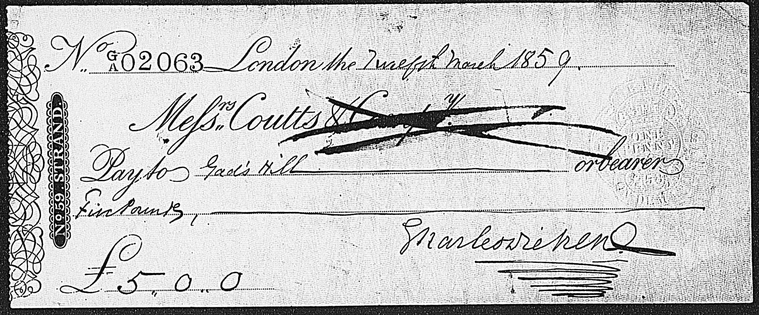 No. G/A 02063 London the Twelfth March 1859.
Messrs. Coutts & Compy.
Pay to Gad's Hill or bearer
Five Pounds,
Charles Dickens
£5..0..0
No. 59. STRAND.
ONE
PENNY